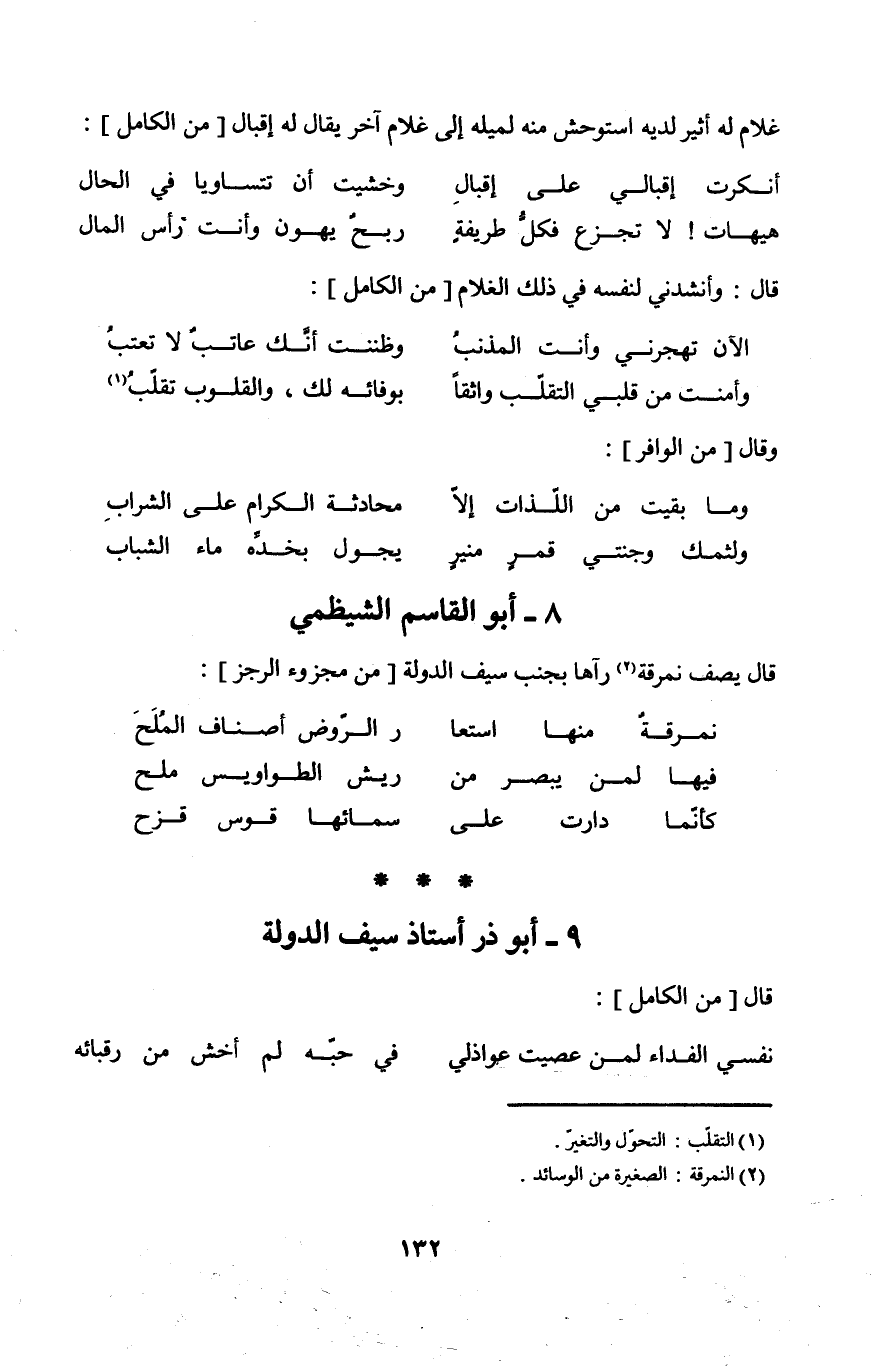 غلام له أثير لديه استوحش منه لميله إلى غلام آخر يقال له إقبال [ من الكامل ] :
أنكرت إقبالي على إقبالِ وخشيت أن تتساويا في الحال
هيهات ! لا تجزع فكلُّ طريفةٍ ربحٌ يهون وأنت رأس المال
قال : وأنشدني لنفسه في ذلك الغلام [ من الكامل ] :
الآن تهجرني وأنت المذنبُ وظننت أنَّك عاتبٌ لا تعتبُ
وأمنت من قلبي التقلّب واثقاً بوفائه لك ، والقلوب تقلّبُ(١)
وقال [ من الوافر ] :
وما بقيت من اللّذات إلاّ محادثة الكرام على الشرابِ
ولثمك وجنتي قمرٍ منيرٍ يجول بخدِّه ماء الشباب
٨ - أبو القاسم الشيظمي
قال يصف نمرقة(٢) رآها بجنب سيف الدولة [ من مجزوء الرجز ] :
نمرقةٌ منها استعا ر الرّوض أصناف المُلَحَ
فيها لمن يبصر من ريش الطواويس ملح
كأنّما دارت على سمائها قوس قزح
* * *
٩ - أبو ذر أستاذ سيف الدولة
قال [ من الكامل ] :
نفسي الفداء لمن عصيت عواذلي في حبّه لم أخش من رقبائه
(١) التقلّب : التحوّل والتغيرّ .
(٢) النمرقة : الصغيرة من الوسائد .
١٣٢